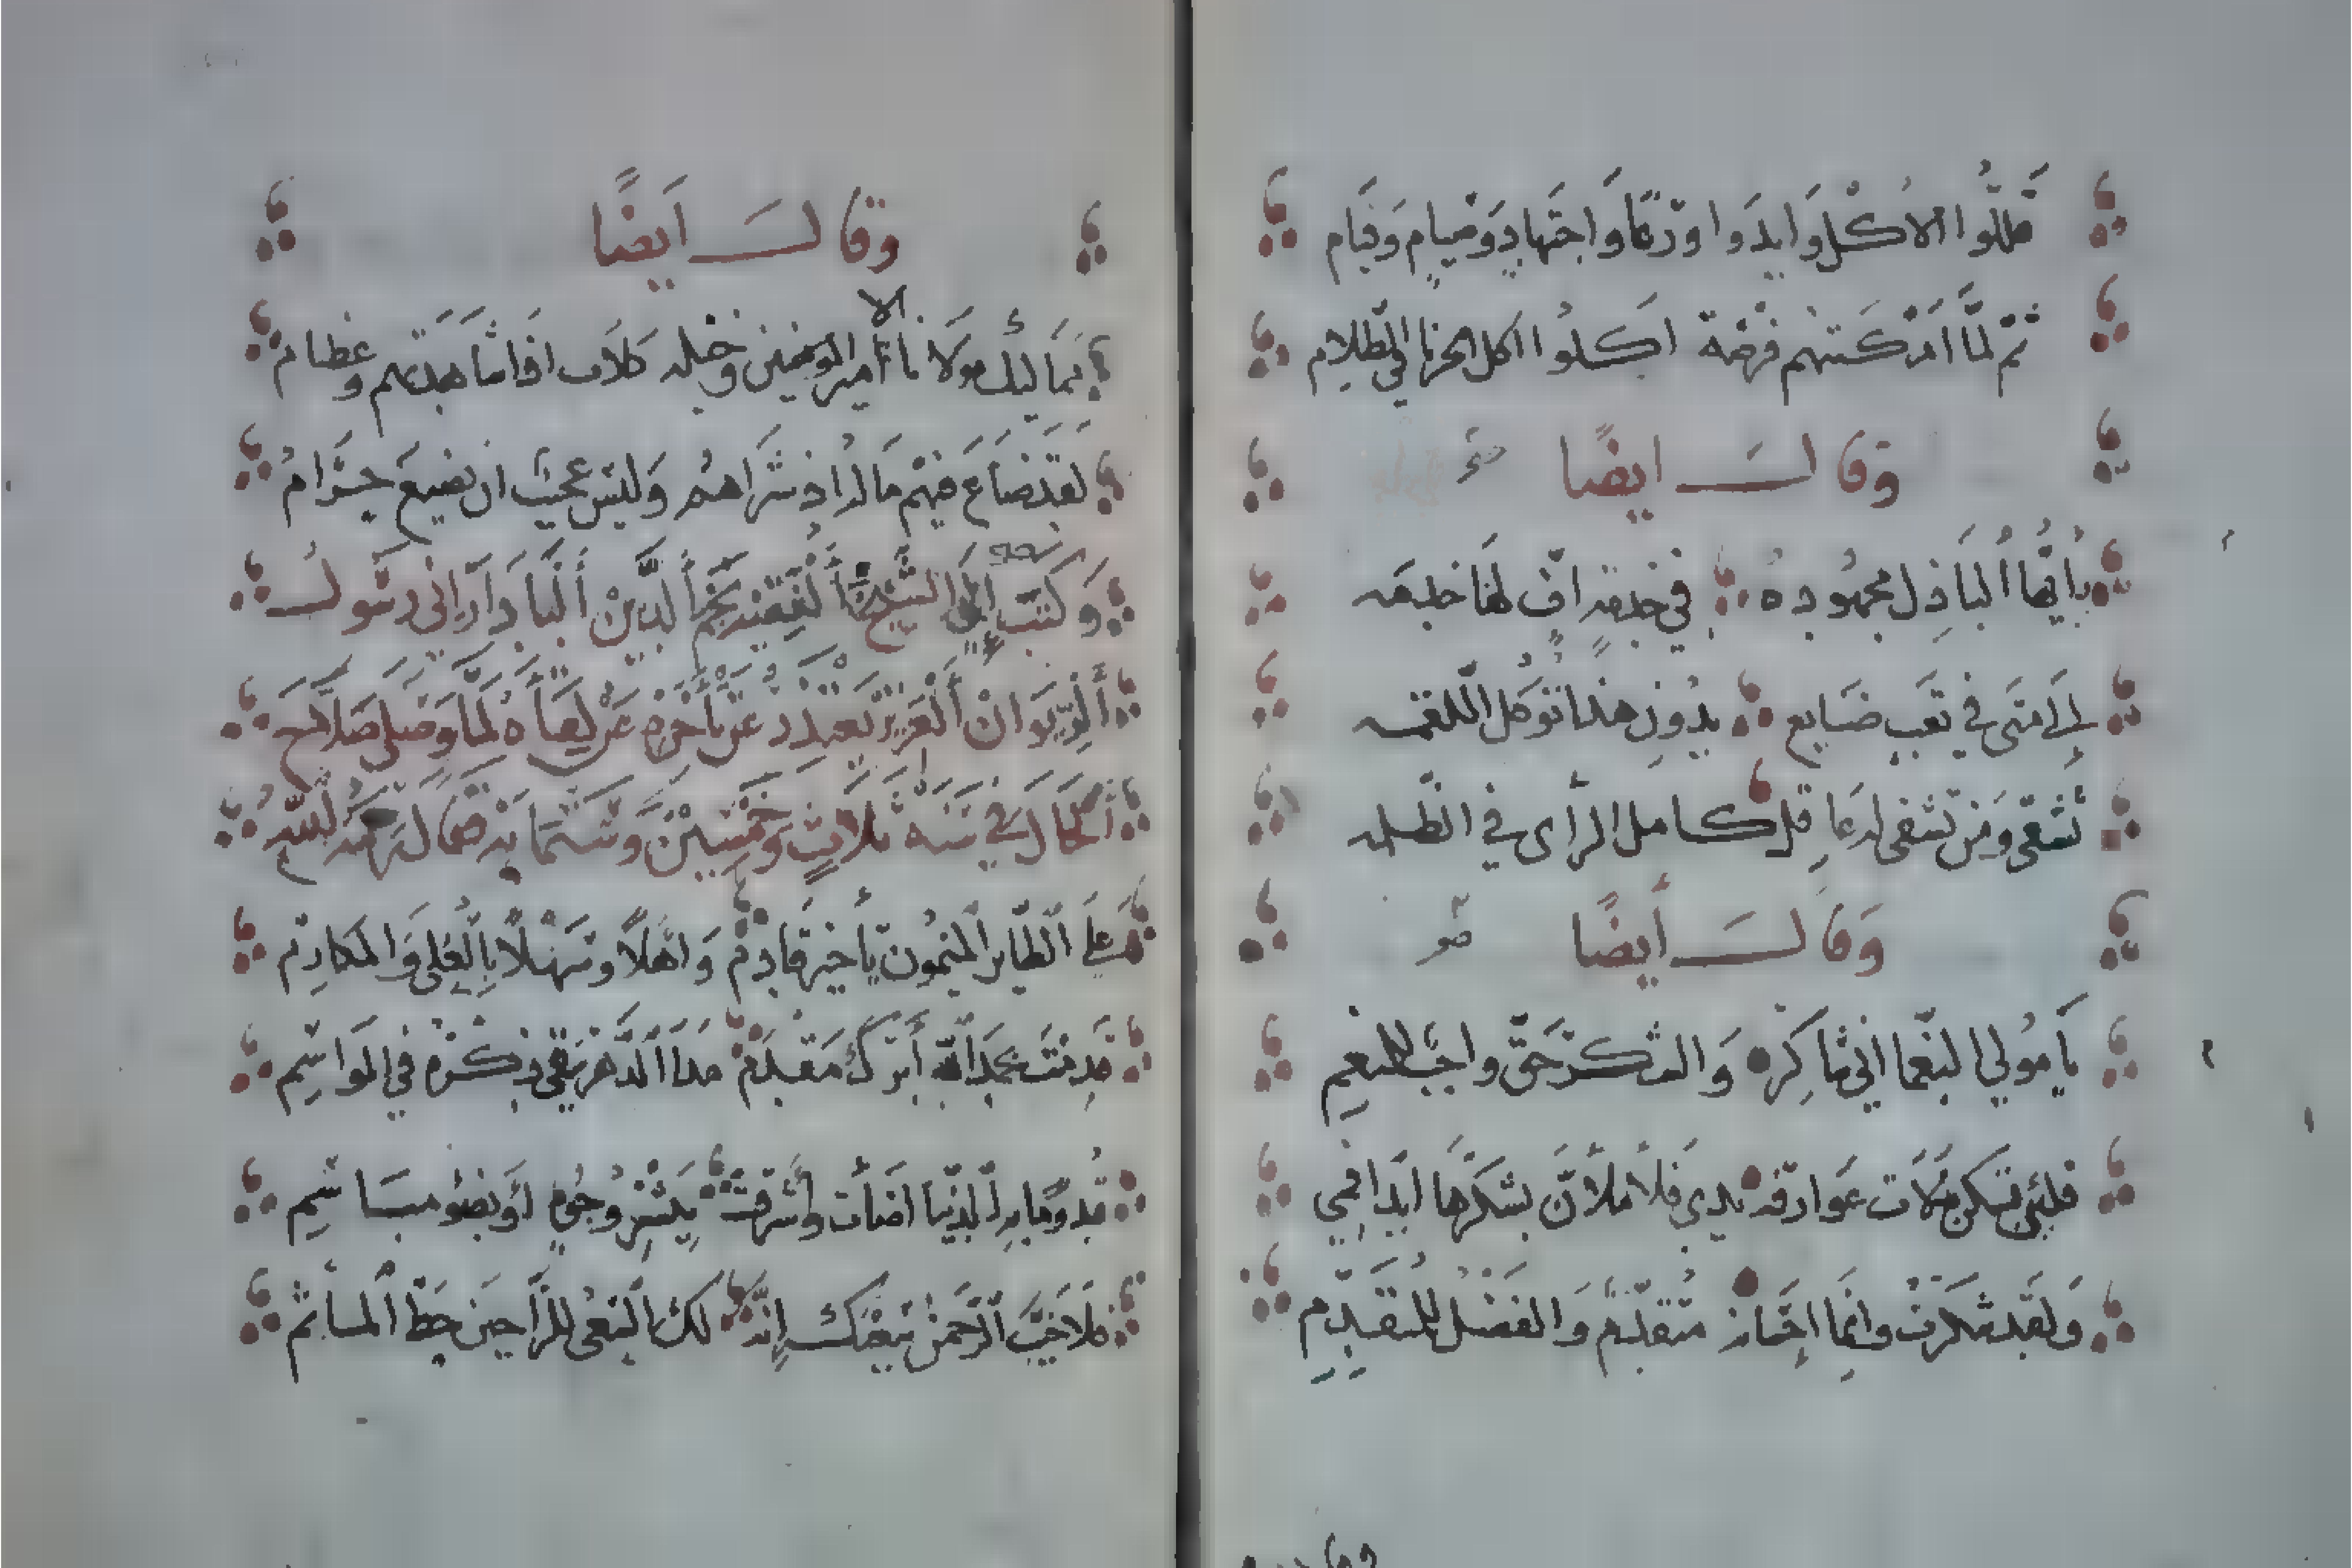 قللوا الاكل وابدوا ورعا واجتهاد وصيام وقيام
ثم لما امكنتهم فرصة اكلوا اكل الحزانا في الظلام
وقال ايضا
يا ايها الباذل مجهوده في خدمة اف لها خدمه
الى متى في تعب ضايع بدون هذا توكل اللقمه
تشقى ومن تشقى له غافل كامل الراى في الظلمه
وقال أيضا
يا مولي النعما اني شاكره والشكر حق واجب للمنعم
فلئن تكن ملات عوارفه يدي فلأملأن بشكرها ابدا فمي
ولقد شكرت وانما احسانه متقدم والفضل للمتقدم
وقال ايضا
مماليك مولانا الامير وخيله كلاب اذا شاهدتهم وعظام
لقد ضاع فيهم ماله اذ شراهم وليس عجيب ان يضيع حرام
وكتب الى الشيخ الفقيه نجم الدين البادراني رسول
الديوان العزيز يعتذر عن تأخره عن لقاه لما وصل صلاح
الحال في سنة ثلاث وخمسين وستماية رحمه الله
على الطاير الميمون يا خير قادم واهلا وسهلا بالعلى والمكارم
قدمت بحمد الله أبرك مقدم مدا الدهر يبقى ذكره في المواسم
قدوما به الدنيا اضأت وأشرقت ببشر وجوه او بضو مباسم
فلا خيب الرحمن سعيك إنه لك النعمى للراجين حط المآثم